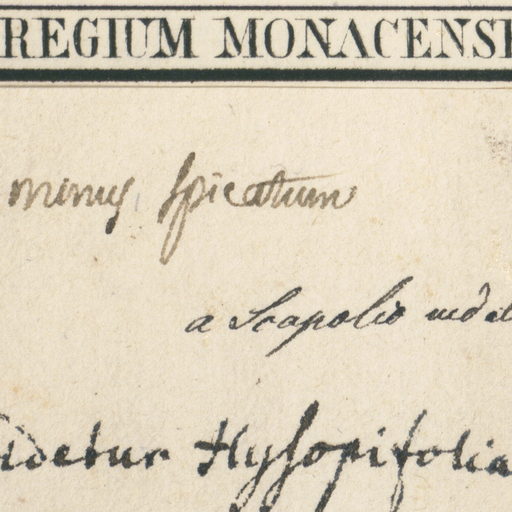 REGIUM MONACENSE
minus spicatum
a Scapolio
videtur Hysopifolia